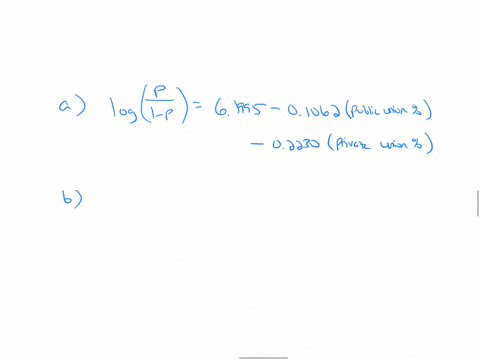 a) log(P/1-P) = 6.1995 - 0.1062 (Public union %)
- 0.2230 (Private union %)
b)